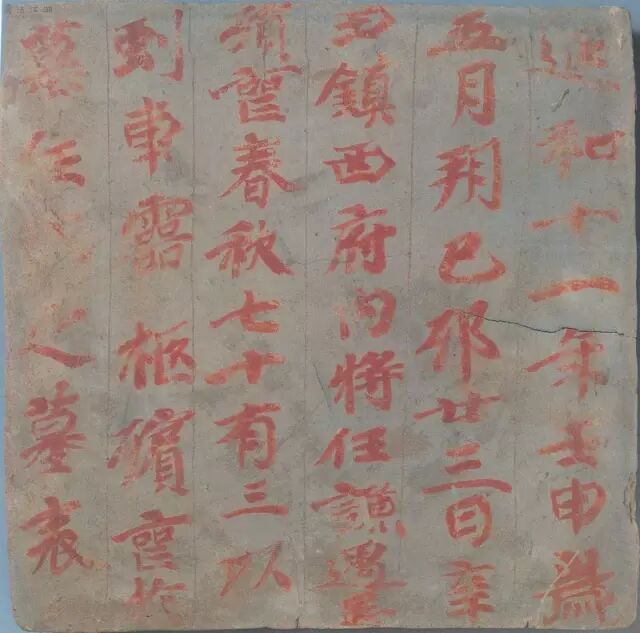 延和十一年壬申歲
五月朔己卯廿三日辛
丑鎮西府内將任謙遇患
殞喪春秋七十有三以
車靈柩殯喪於
墓任之墓表